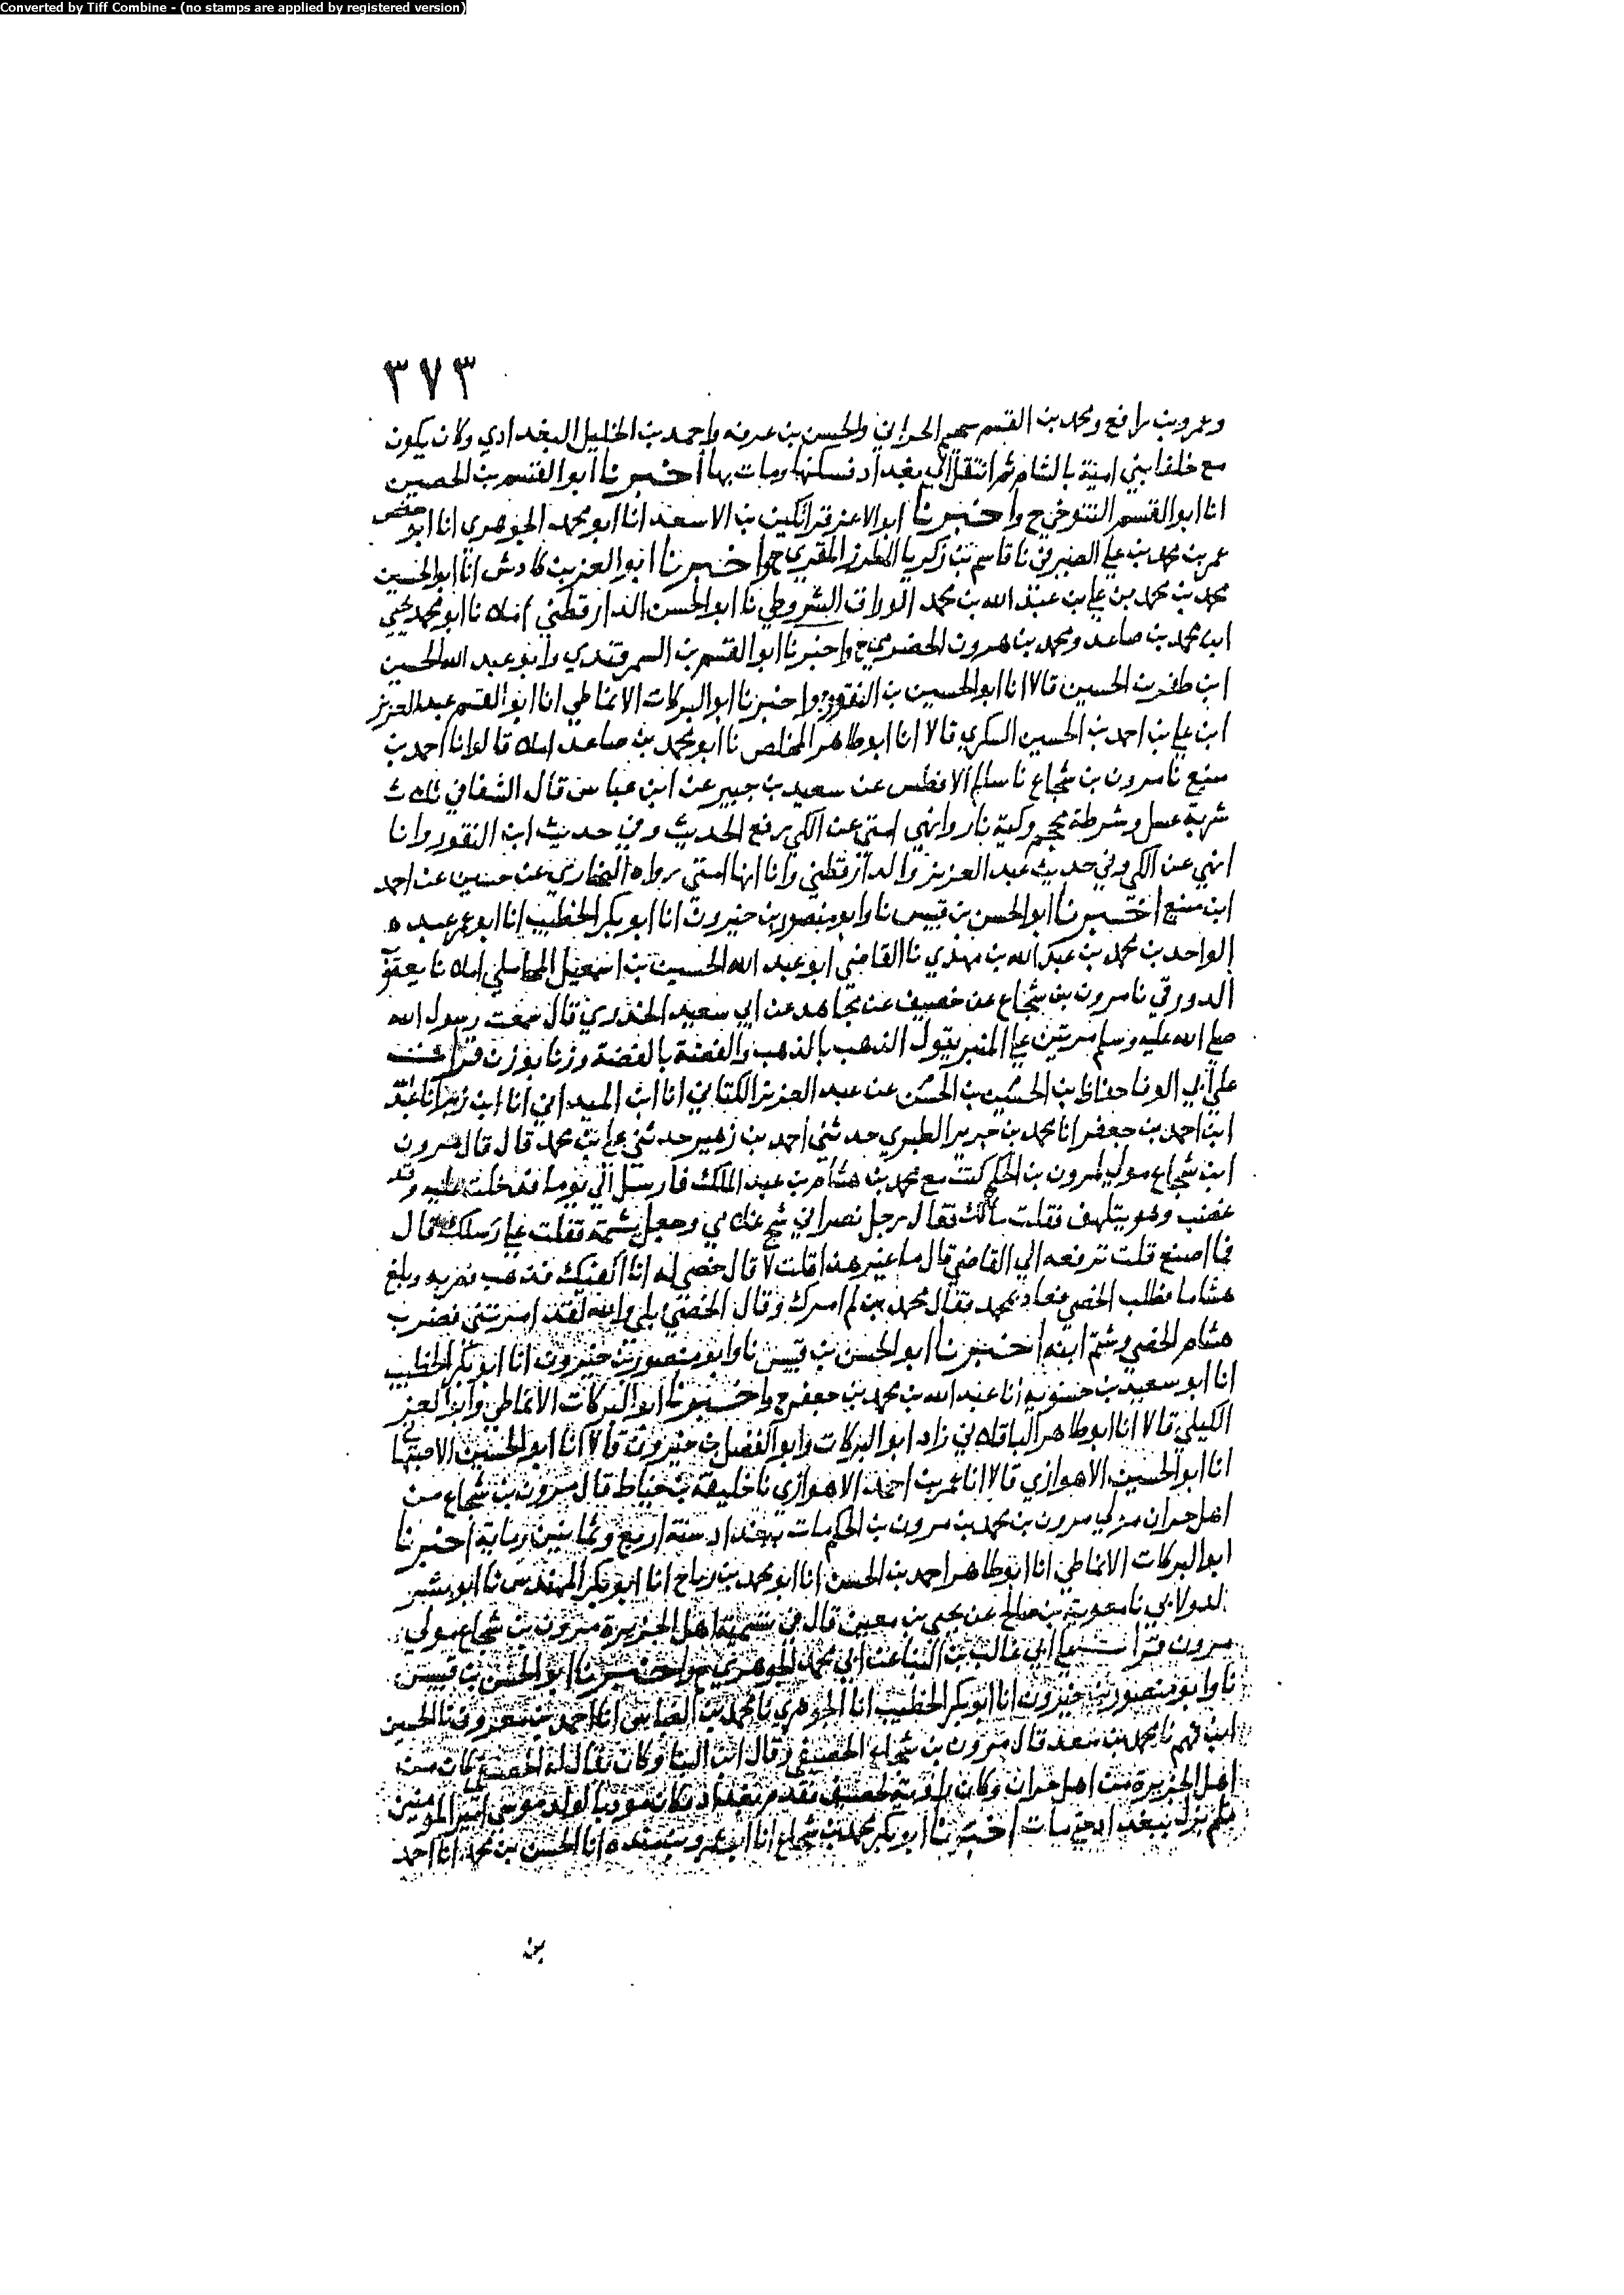 Converted by Tiff Combine - (no stamps are applied by registered version)
٣٧٣
وعمرو بن رافع ومحمد بن القسم سحيم الحراني والحسن بن عرفه واحمد بن الخليل البغدادي وكان يكون
مع خلفا بني امية بالشام ثم انتقل الى بغداد فسكنها ومات بها اخبرنا ابو القسم بن الحصين
انا ابو القسم التنوخي ح واخبرنا ابو الاعز قراتكين بن الاسعد انا ابو محمد الجوهري انا ابو حفص
عمر بن محمد بن علي الصيرفي نا قاسم بن زكريا المطرز المقري ح واخبرنا ابو العز بن كادش انا ابو الحسين
محمد بن محمد بن علي بن عبد الله بن محمد الوراق الشروطي نا ابو الحسن الدارقطني املا نا ابو محمد يحيى
ابن محمد بن صاعد ومحمد بن هرون الحضرمي ح واخبرنا ابو القسم بن السمرقندي وابو عبد الله الحسين
ابن ظفر بن الحسين قالا انا ابو الحسين بن النقور واخبرنا ابو البركات الانماطي انا ابو القسم عبد العزيز
ابن علي بن احمد بن الحسين السكري قالا انا ابو طاهر المخلص نا ابو محمد بن صاعد املا قالوا نا احمد بن
منيع نا مرون بن شجاع نا سالم الافطس عن سعيد بن جبير عن ابن عباس قال الشفا في ثلاث
شربة عسل وشرطة محجم وكية نار وانهى امتي عن الكي رفع الحديث وفي حديث ابن النقور وانا
انهي عن الكي وفي حديث عبد العزيز والدارقطني وانا انها امتي رواه البخاري عن حسين عن احمد
ابن منيع اخبرنا ابو الحسن بن قبيس نا وابو منصور بن خيرون انا ابو بكر الخطيب انا ابو عمر عبد
الواحد بن محمد بن عبد الله بن مهدي نا القاضي ابو عبد الله الحسين بن اسمعيل المحاملي املا نا يعقوب
الدورقي نا مرون بن شجاع عن خصيف عن مجاهد عن ابي سعيد الخدري قال سمعت رسول الله
صلى الله عليه وسلم مرتين على المنبر يقول الذهب بالذهب والفضة بالفضة وزنا بوزن قرات
على ابي الوفا حفاظ بن الحسين بن الحسن عن عبد العزيز الكتاني انا ابن الميداني انا ابن زبر انا عبد الله
ابن احمد بن جعفر انا محمد بن جرير الطبري حدثني احمد بن زهير حدثني علي بن محمد قال قال مرون
ابن شجاع مولى لمرون بن الحكم كنت مع محمد بن هشام بن عبد الملك فارسل الي يوما فدخلت عليه وقد
غضب وهو يتلهف فقلت مالك فقال رجل نصراني شج غلامي وجعل يشتمه فقلت على رسلك قال
فما اصنع قلت ترفعه الى القاضي قال ما غير هذا قلت لا قال خصي له انا اكفيك فذهب فضربه وبلغ
هشاما فطلب الخصي فعاذ بمحمد فقال محمد بن لم امرك وقال الخصي بلى والله لقد امرتني فضرب
هشام الخصي وشتم ابنه اخبرنا ابو الحسن بن قبيس نا وابو منصور بن خيرون انا ابو بكر الخطيب
انا ابو سعيد بن حسنويه انا عبد الله بن محمد بن جعفر ح واخبرنا ابو البركات الانماطي وابو العز
الكيلي قالا انا ابو طاهر الباقلاني زاد ابو البركات وابو الفضل بن خيرون قالا انا ابو الحسين الاصبهاني
انا ابو الحسين الاهوازي قالا انا عمر بن احمد الاهوازي نا خليفة بن خياط قال مرون بن شجاع من
اهل حران مولى مرون بن محمد بن مرون بن الحكم مات ببغداد سنة اربع وثمانين وماية اخبرنا
ابو البركات الانماطي انا ابو طاهر احمد بن الحسن انا ابو محمد بن رباح انا ابو بكر المهندس نا ابو بشر
الدولابي نا معوية بن صالح عن يحيى بن معين قال في تسمية اهل الجزيرة مرون بن شجاع مولى
مرون قرات على ابي غالب بن البنا عن ابي محمد الجوهري ح واخبرنا ابو الحسن بن قبيس
نا وابو منصور بن خيرون انا ابو بكر الخطيب انا الجوهري نا محمد بن العباس انا احمد بن معروف نا الحسين
ابن فهم نا محمد بن سعد قال مرون بن شجاع الخصيفي وقال ابن البنا وكان يقال له الخصيفي كان من
اهل الجزيرة من اهل حران وكان راوية لخصيف فقدم بغداد فكان مودبا لولد موسى امير المومنين
فلم يزل ببغداد حتى مات اخبرنا ابو بكر محمد بن شجاع انا ابو عمرو بن منده انا الحسن بن محمد انا احمد
بن